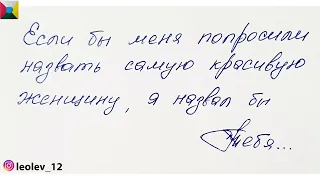 Если бы меня попросили
назвать самую красивую
женщину, я назвал бы
Тебя...
leolev_12